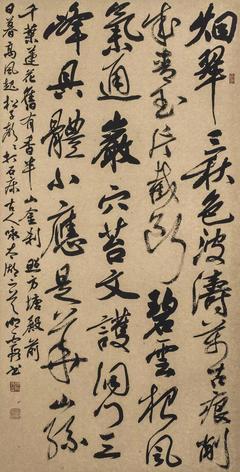 烟翠三秋色波濤萬古痕削
成青玉片截斷碧雲根風
氣通巖穴苔文護洞門三
峰具體小應是華山孫
千葉蓮花舊有香半山金刹照方塘殿前
日暮高風起松子聲聲打石床古人咏太湖書